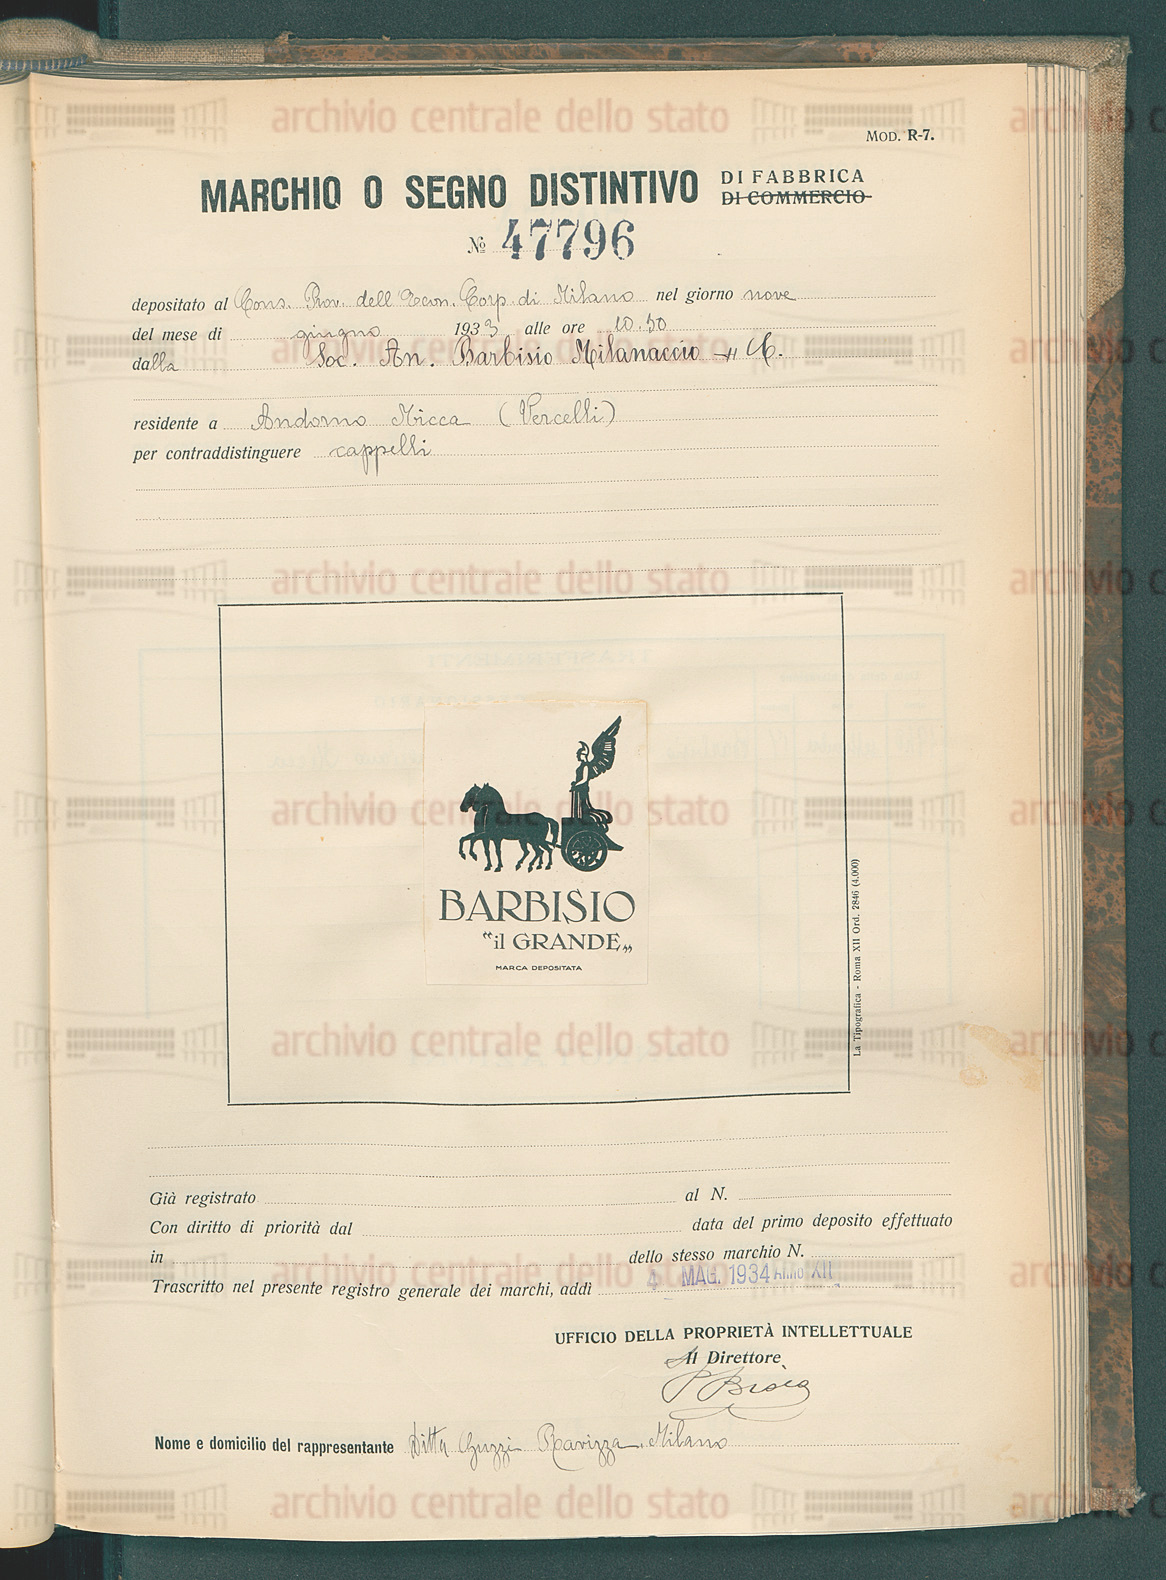 MOD. R-7.
MARCHIO O SEGNO DISTINTIVO DI FABBRICA
DI COMMERCIO
№ 47796
depositato al Cons. Prov. dell'Econ. Corp. di Milano nel giorno nove
del mese di giugno 1933 alle ore 10.50
dalla Soc. An. Barbisio Milanaccio & C.
residente a Andorno Micca (Vercelli)
per contraddistinguere cappelli
BARBISIO
"il GRANDE„
MARCA DEPOSITATA
La Tipografica - Roma XII Ord. 2846 (4.000)
Già registrato al N.
Con diritto di priorità dal data del primo deposito effettuato
in dello stesso marchio N.
Trascritto nel presente registro generale dei marchi, addì 4 MAG. 1934 Anno XII
UFFICIO DELLA PROPRIETÀ INTELLETTUALE
Il Direttore
Nome e domicilio del rappresentante Ditta Guzzi Ravizza Milano
archivio centrale dello stato